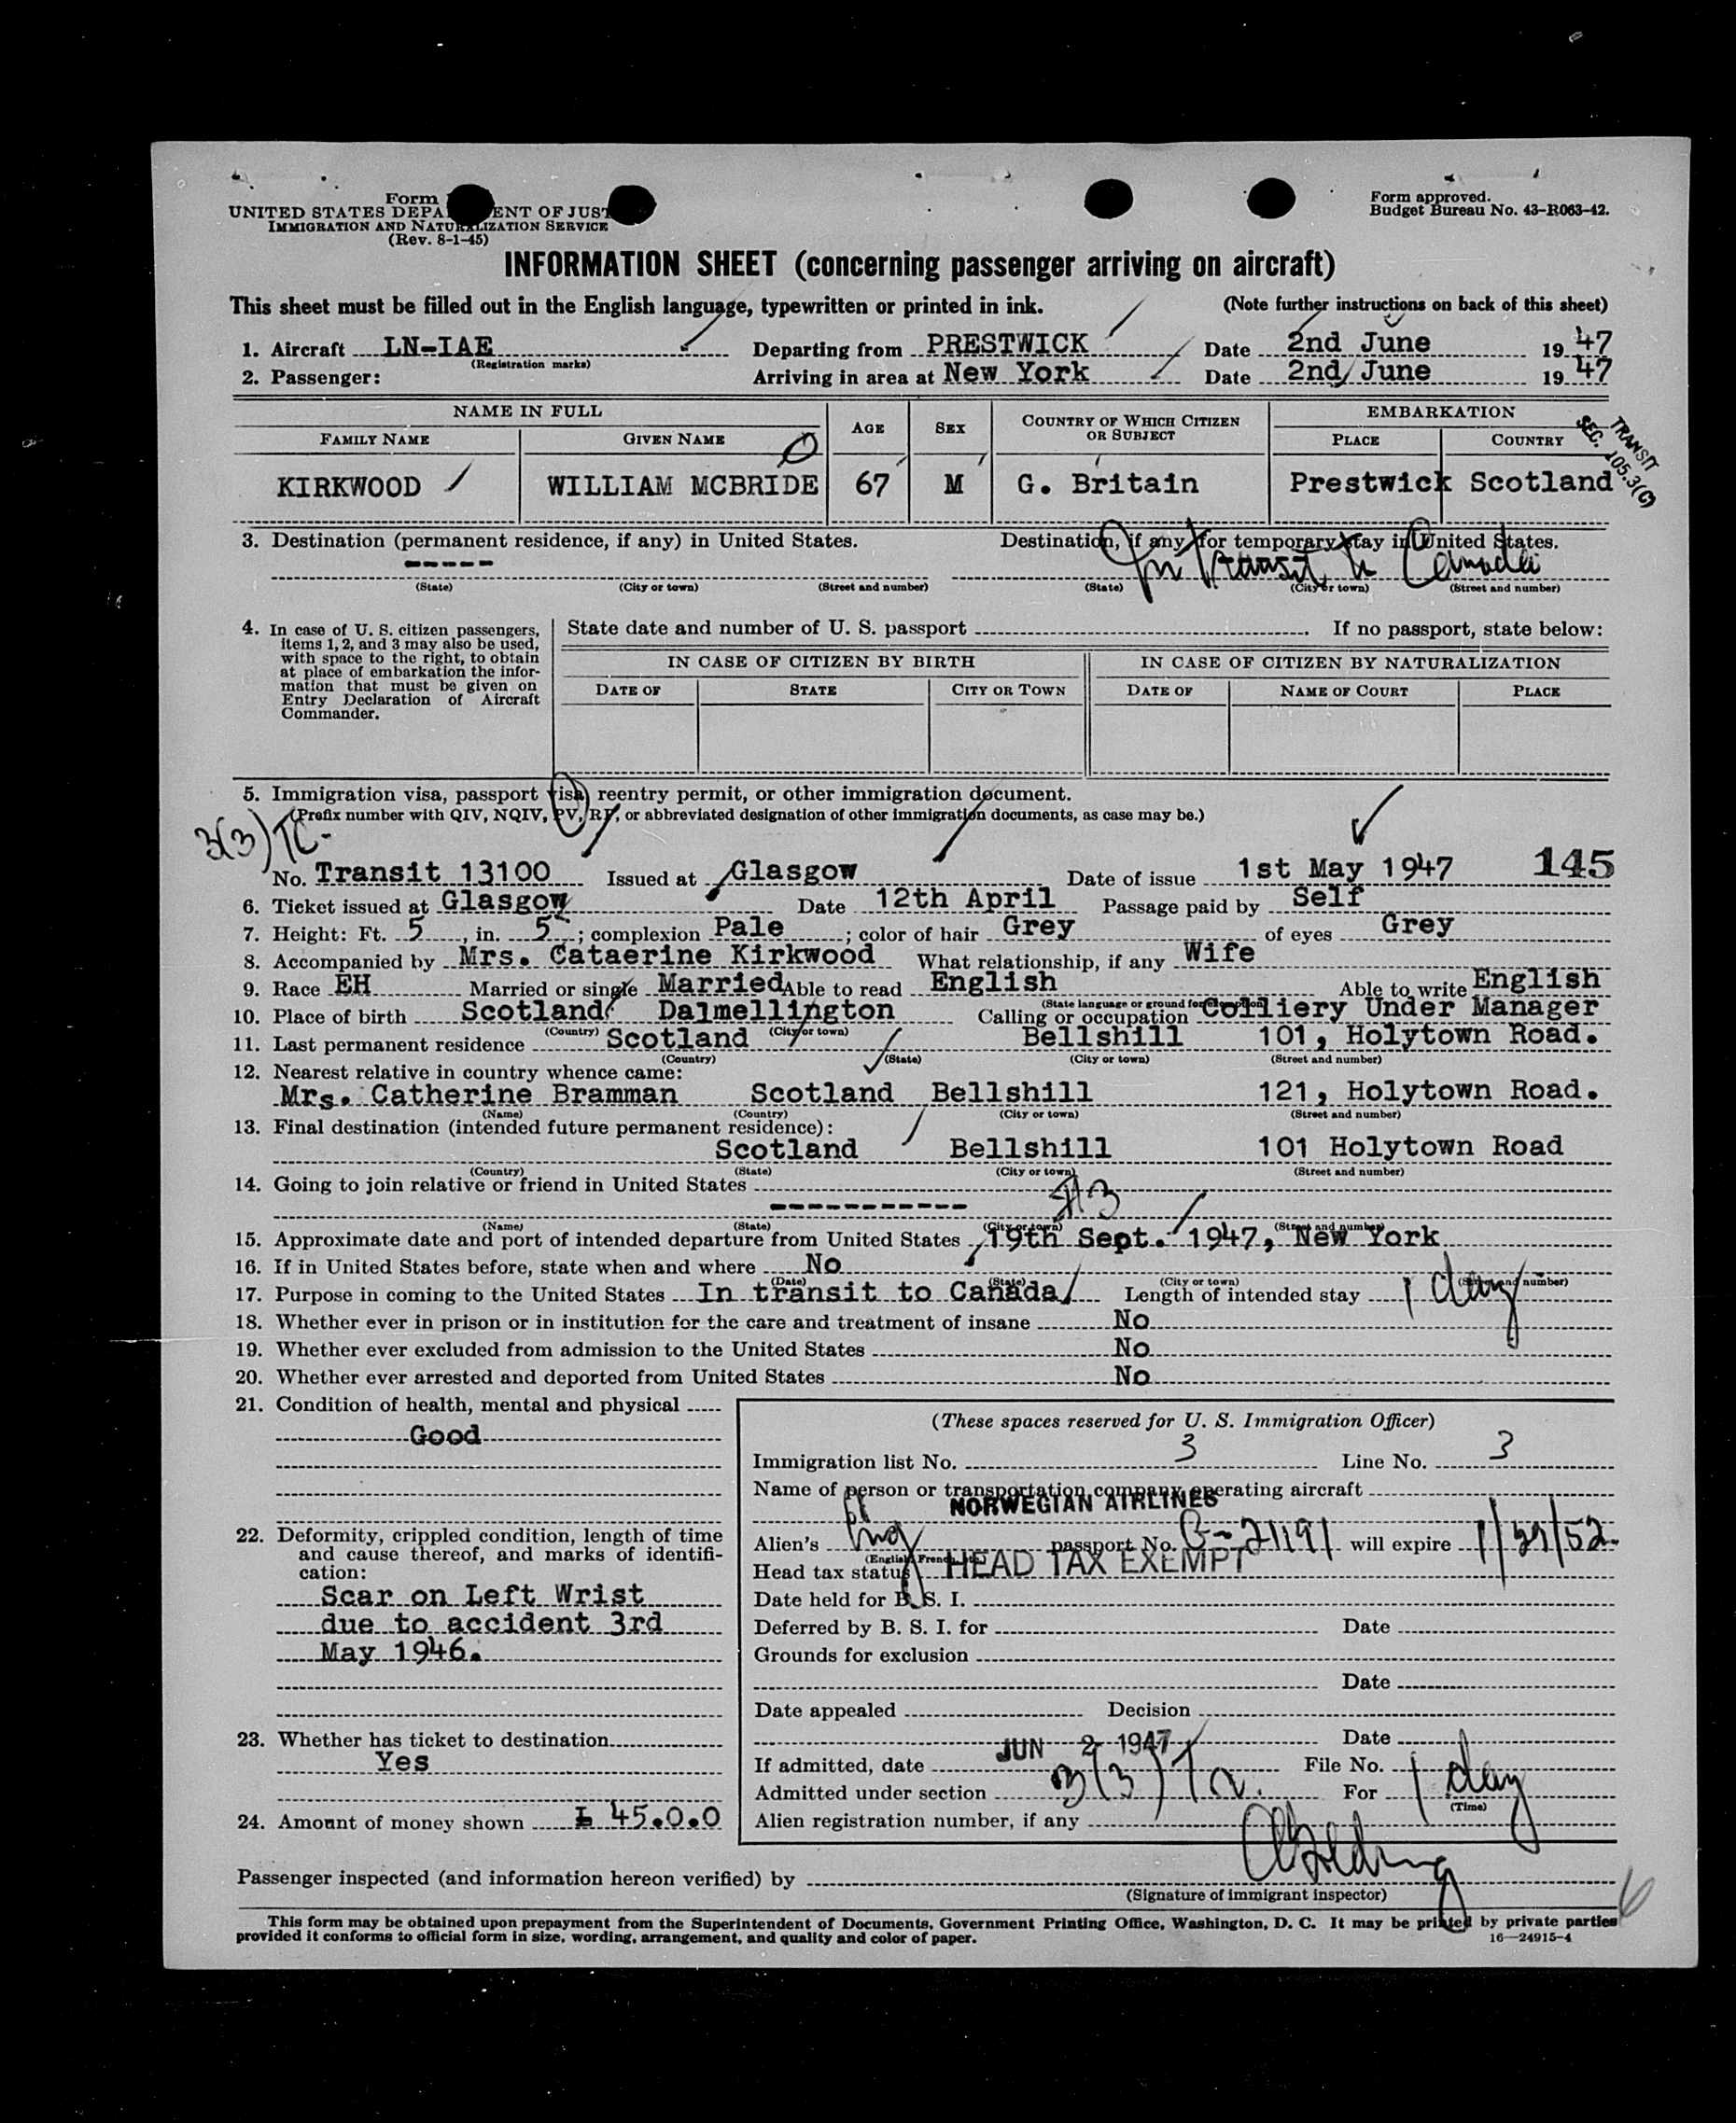 Form
UNITED STATES DEPA ENT OF JUST
IMMIGRATION AND NATURALIZATION SERVICE
(Rev. 8-1-45)
Form approved.
Budget Bureau No. 43-R063-42.
INFORMATION SHEET (concerning passenger arriving on aircraft)
This sheet must be filled out in the English language, typewritten or printed in ink. (Note further instructions on back of this sheet)
1. Aircraft LN-IAE Departing from PRESTWICK Date 2nd June 1947
(Registration marks)
2. Passenger: Arriving in area at New York Date 2nd June 1947
NAME IN FULL AGE SEX COUNTRY OF WHICH CITIZEN OR SUBJECT EMBARKATION
FAMILY NAME GIVEN NAME PLACE COUNTRY
TRANSIT
SEC. 105.3(C)
KIRKWOOD WILLIAM MCBRIDE 67 M G. Britain Prestwick Scotland
3. Destination (permanent residence, if any) in United States. Destination, if any, for temporary stay in United States.
----- In transit to Canada
(State) (City or town) (Street and number) (State) (City or town) (Street and number)
4. In case of U. S. citizen passengers, items 1, 2, and 3 may also be used, with space to the right, to obtain at place of embarkation the information that must be given on Entry Declaration of Aircraft Commander.
State date and number of U. S. passport If no passport, state below:
IN CASE OF CITIZEN BY BIRTH IN CASE OF CITIZEN BY NATURALIZATION
DATE OF STATE CITY OR TOWN DATE OF NAME OF COURT PLACE
5. Immigration visa, passport visa, reentry permit, or other immigration document.
(Prefix number with QIV, NQIV, PV, RP, or abbreviated designation of other immigration documents, as case may be.)
3(3) TC.
No. Transit 13100 Issued at Glasgow Date of issue 1st May 1947 145
6. Ticket issued at Glasgow Date 12th April Passage paid by Self
7. Height: Ft. 5, in. 5; complexion Pale; color of hair Grey of eyes Grey
8. Accompanied by Mrs. Cataerine Kirkwood What relationship, if any Wife
9. Race EH Married or single Married Able to read English Able to write English
(State language or ground for exemption)
10. Place of birth Scotland Dalmellington Calling or occupation Colliery Under Manager
(Country) (City or town)
11. Last permanent residence Scotland Bellshill 101, Holytown Road.
(Country) (State) (City or town) (Street and number)
12. Nearest relative in country whence came:
Mrs. Catherine Bramman Scotland Bellshill 121, Holytown Road.
(Name) (Country) (City or town) (Street and number)
13. Final destination (intended future permanent residence):
Scotland Bellshill 101 Holytown Road
(Country) (State) (City or town) (Street and number)
14. Going to join relative or friend in United States
-----------
(Name) (State) (City or town) (Street and number)
15. Approximate date and port of intended departure from United States 19th Sept. 1947, New York
16. If in United States before, state when and where No
(Date) (State) (City or town) (Street and number)
17. Purpose in coming to the United States In transit to Canada Length of intended stay 1 day
18. Whether ever in prison or in institution for the care and treatment of insane No
19. Whether ever excluded from admission to the United States No
20. Whether ever arrested and deported from United States No
21. Condition of health, mental and physical
Good
22. Deformity, crippled condition, length of time and cause thereof, and marks of identification:
Scar on Left Wrist
due to accident 3rd
May 1946.
23. Whether has ticket to destination
Yes
24. Amount of money shown £ 45.0.0
(These spaces reserved for U. S. Immigration Officer)
Immigration list No. 3 Line No. 3
Name of person or transportation company operating aircraft
NORWEGIAN AIRLINES
Alien's passport No. will expire
(English, French, etc.)
Head tax status HEAD TAX EXEMPT
Date held for B. S. I.
Deferred by B. S. I. for Date
Grounds for exclusion
Date
Date appealed Decision
Date
If admitted, date JUN 2- 1947 File No.
Admitted under section 3(3) For 1 day
(Time)
Alien registration number, if any
Passenger inspected (and information hereon verified) by
(Signature of immigrant inspector)
This form may be obtained upon prepayment from the Superintendent of Documents, Government Printing Office, Washington, D. C. It may be printed by private parties
provided it conforms to official form in size, wording, arrangement, and quality and color of paper.
16—24915-4